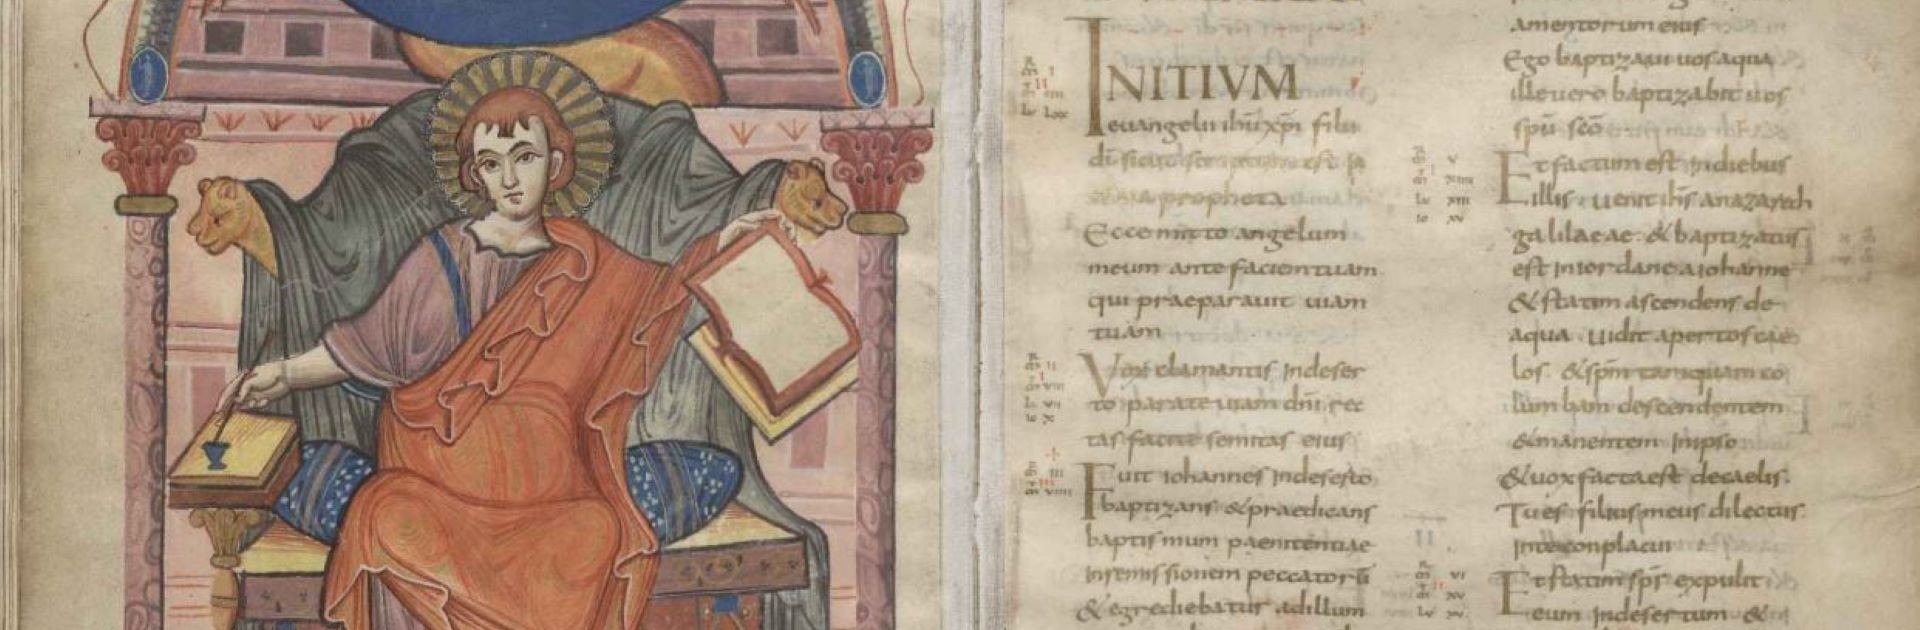 INITIVM
euangelii ihu xpi filii
di sicut scriptum est in
esaia propheta
Ecce mitto angelum
meum ante faciem tuam
qui praeparauit uiam
tuam
Vox clamantis Indeser
to parate uiam dni rec
tas facite semitas eius
Fuit iohannes Indeserto
baptizans & praedicans
baptismum paenitentiae
Inremissionem peccatorū
& egrediebatur ad illum
amentorum eius
Ego baptizaui uos aqua
ille uero baptizabit uos
spu sco
Et factum est Indiebus
illis uenit ihs anazareth
galilaeae & baptizatus
est Iniordane aiohanne
& statim ascendens de
aqua uidit apertos cae
los & spm tamquam co
lumbam descendentem
& manentem Inipso
& uox facta est decaelis
Tu es filius meus dilectus
Inte conplacui
Et statim sps expulit
eum Indesertum &